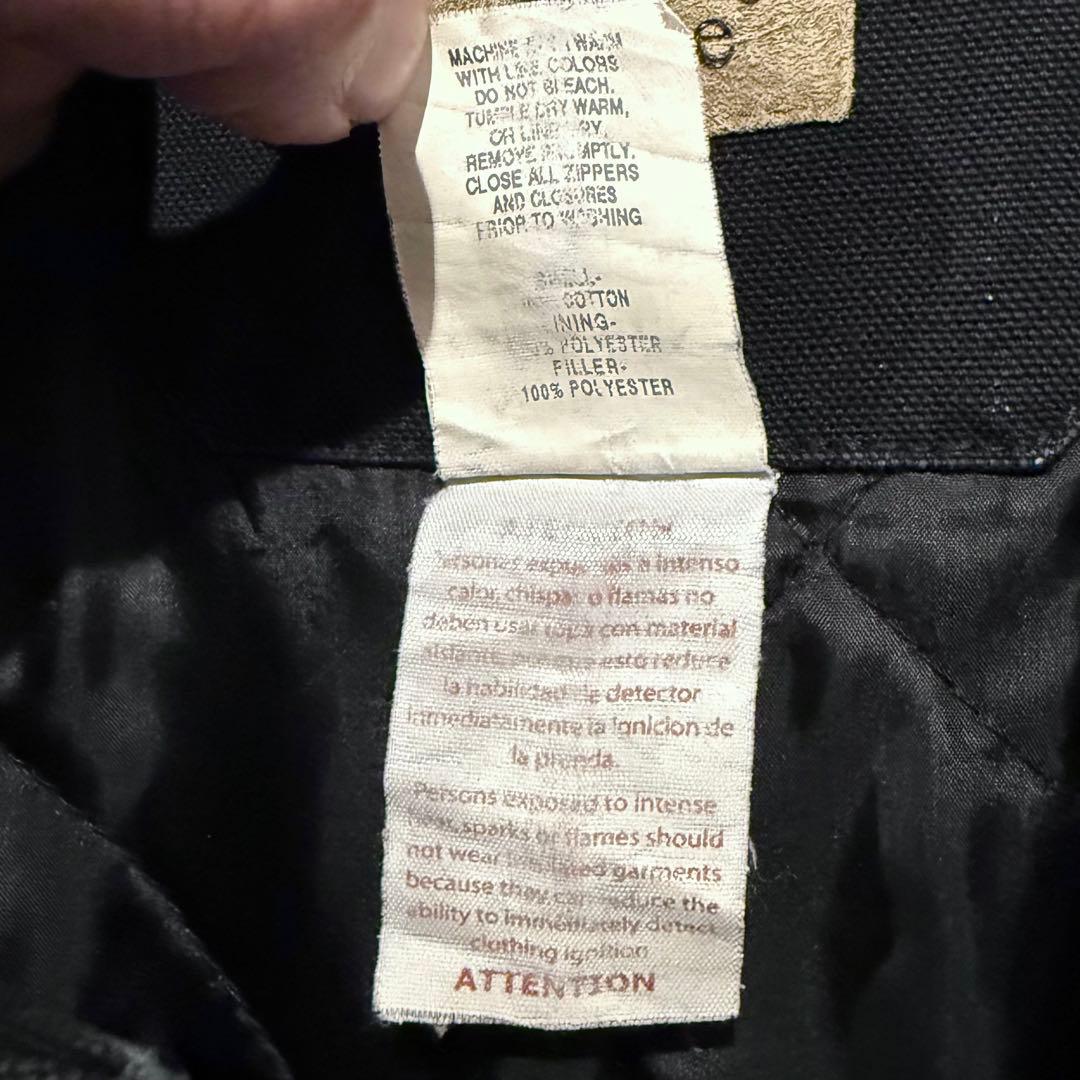 e
MACHINE WARM
WITH LIKE COLORS
DO NOT BLEACH.
TUMBLE DRY WARM,
OR LINE DRY,
REMOVE PROMPTLY.
CLOSE ALL ZIPPERS
AND CLOSURES
PRIOR TO WASHING
COTTON
POLYESTER
FILLER-
100% POLYESTER
intenso
calor, chispas o flamas no
deben usar ropa con material
esto reduce
la habilidad de detector
inmediatamente la ignicion de
la prenda.
Persons exposed to intense
sparks or flames should
not wear garments
because they can reduce the
ability to immediately detect
clothing ignition
ATTENTION